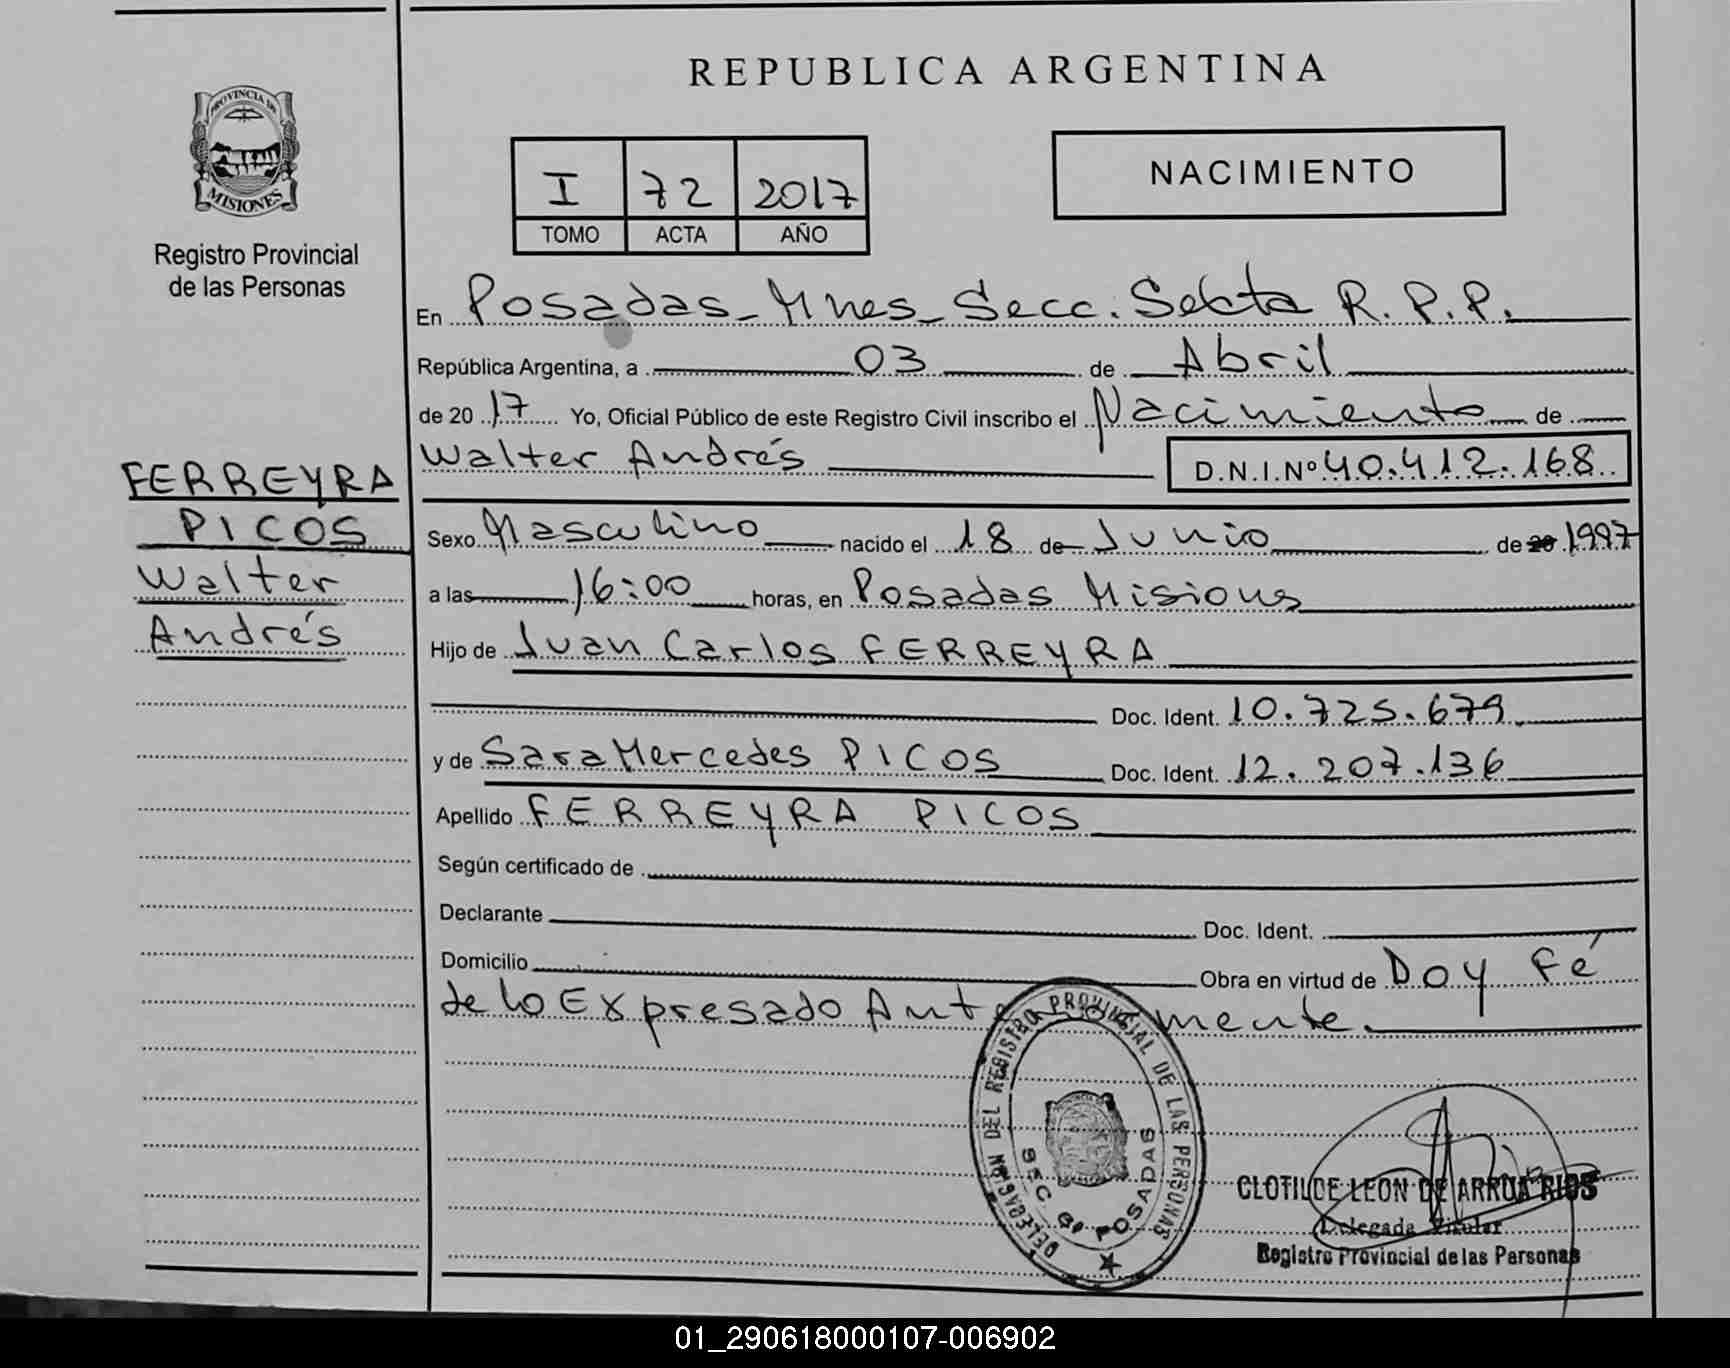 REPUBLICA ARGENTINA
PROVINCIA DE
MISIONES
Registro Provincial
de las Personas
I 72 2017
TOMO ACTA AÑO
NACIMIENTO
En Posadas_Mnes_Secc. Sexta R.P.P.
República Argentina, a 03 de Abril
de 20 17 Yo, Oficial Público de este Registro Civil inscribo el Nacimiento de
Walter Andrés D.N.I.Nº 40.412.168
FERREYRA
PICOS
Walter
Andrés
Sexo Masculino nacido el 18 de Junio de 20 1997
a las 16:00 horas, en Posadas Misiones
Hijo de Juan Carlos FERREYRA
Doc. Ident. 10.725.679
y de Sara Mercedes PICOS Doc. Ident. 12.207.136
Apellido FERREYRA PICOS
Según certificado de
Declarante Doc. Ident.
Domicilio Obra en virtud de Doy Fé
de lo Expresado mente.
DELEGACION DEL REGISTRO PROVINCIAL DE LAS PERSONAS
SEC. 6º POSADAS
CLOTILDE LEON DE ARRUA RIOS
Delegada Titular
Registro Provincial de las Personas
01_290618000107-006902